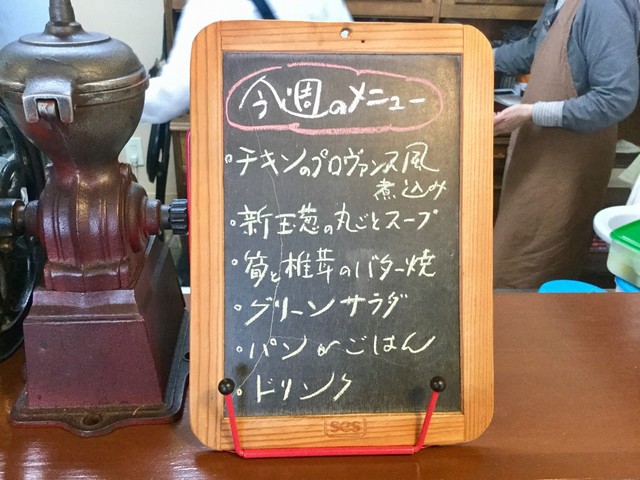 今週のメニュー
・チキンのプロヴァンス風
煮込み
・新玉葱の丸ごとスープ
・筍と椎茸のバター焼
・グリーンサラダ
・パンorごはん
・ドリンク
SCS